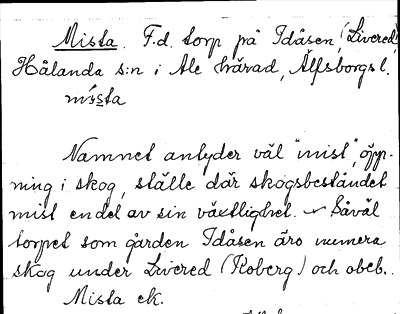 Mista. F.d. torp på Idåsen, (Livered)
Hålanda s:n i Ale härad, Älfsborgs l.
mi̍sta
Namnet antyder väl "mist", öpp-
ning i skog, ställe där skogsbeståndet
mist en del av sin växtlighet. Såväl
torpet som gården Idåsen äro numera
skog under Livered (Floberg) och obeb.
Mista ek.